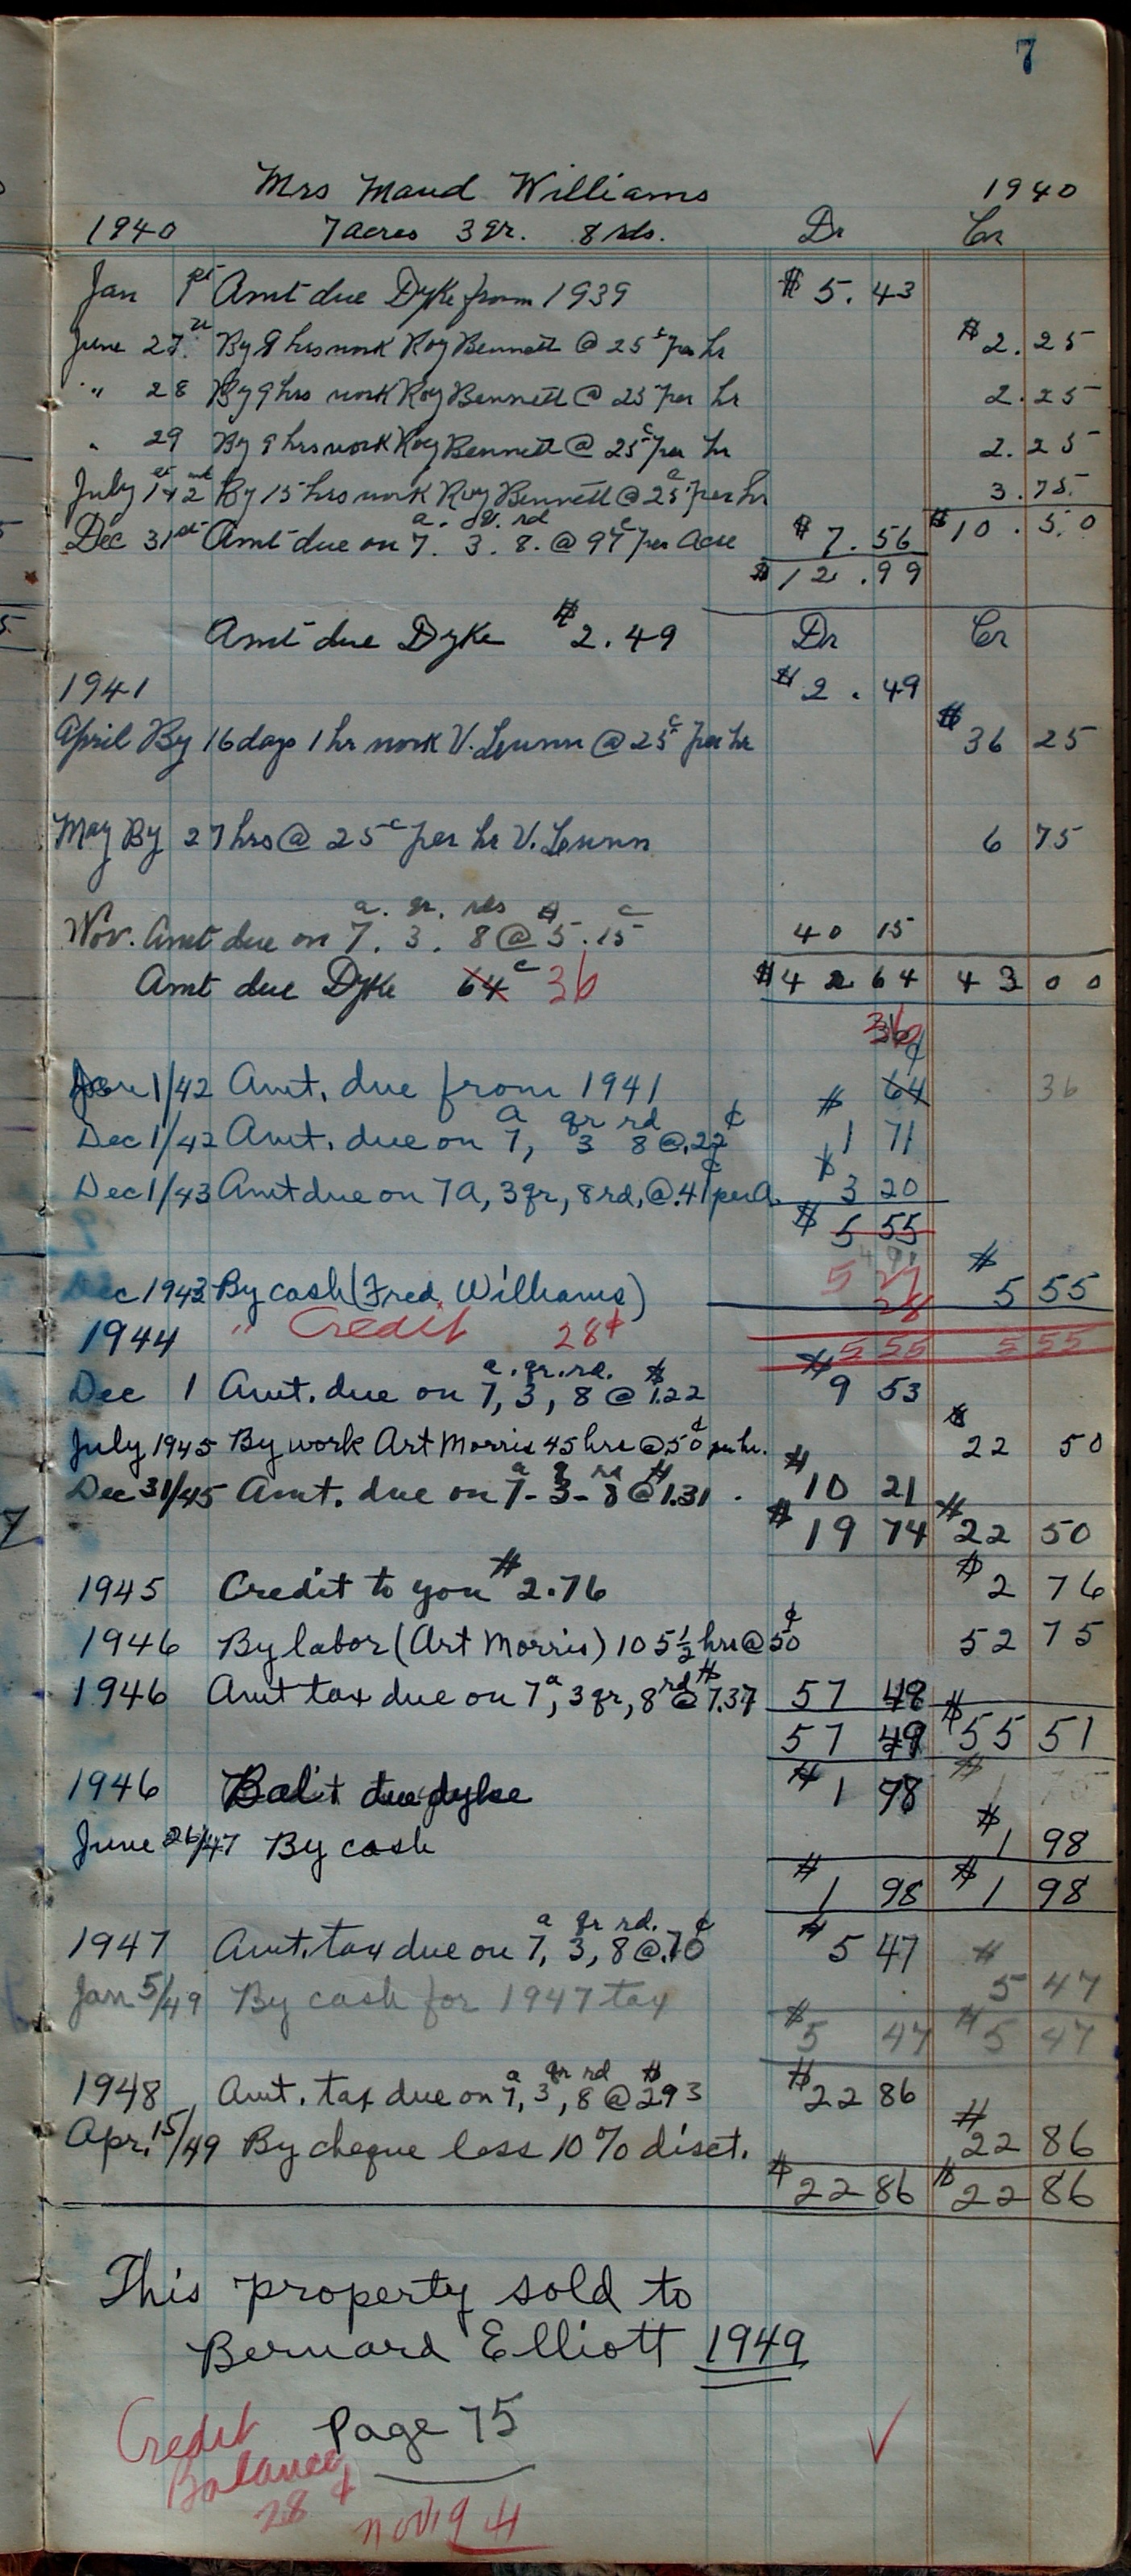 7
Mrs Maud Williams 1940
1940 7 acres 3 qr. 8 rds. Dr Cr
Jan 1st Amt due Dyke from 1939 $5.43
June 27. By 9 hrs work Roy Bennett @ 25c per hr $2.25
" 28 By 9 hrs work Roy Bennett @ 25 per hr 2.25
" 29 By 9 hrs work Roy Bennett @ 25c per hr 2.25
July 1st + 2nd By 15 hrs work Roy Bennett @ 25c per hr 3.75
a. qr. rd
Dec 31st Amt due on 7. 3. 8. @ 97c per Acre $7.56 $10.50
$12.99
Amt due Dyke $2.49 Dr Cr
1941 $2.49
April By 16 days 1 hr work V. @ 25c per hr $36 25
May By 27 hrs @ 25c per hr V. 6 75
a. qr. rds $ c
Nov. Amt due on 7. 3. 8 @ 5.15 40 15
Amt due Dyke 64c 36 $42 64 43 00
36¢
Jan 1/42 Amt. due from 1941 64 36
a qr rd ¢
Dec 1/42 Amt. due on 7, 3 8 @ .22 $1 71
Dec 1/43 Amt due on 7A, 3 qr, 8 rd, @ .41¢ per A. $3 20
$5 55
5 27
Dec 1943 By cash (Fred Williams) 28 $5 55
1944 " Credit 28¢ 5 55 5 55
a. qr. rd. $
Dec 1 Amt. due on 7, 3, 8 @ 1.22 $9 53
July 1945 By work Art Morris 45 hrs @ 50¢ per hr. $22 50
a q rd $
Dec 31/45 Amt. due on 7-3-8 @ 1.31. $10 21
$19 74 $22 50
1945 Credit to you $2.76 $2 76
1946 By labor (Art Morris) 105½ hrs @ 50¢ 52 75
1946 Amt tax due on 7a, 3 qr, 8 rd @ $7.37 57 49
57 49 $55 51
1946 Bal't due dyke $1 98
June 26/47 By cash $1 98
$1 98 $1 98
a qr rd. ¢
1947 Amt. tax due on 7, 3, 8 @ .70 $5 47
Jan 5/49 By cash for 1947 tax $5 47
$5 47 $5 47
a qr rd $
1948 Amt. tax due on 7, 3, 8 @ 293 $22 86
Apr. 15/49 By cheque less 10% disct. $22 86
$22 86 $22 86
This property sold to
Bernard Elliott 1949
Page 75
Credit
Balance
28¢
Nov 19 41